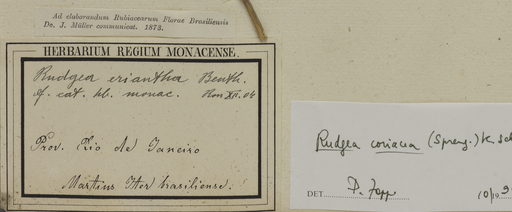 Ad elaborandum Rubiacearum Florae Brasiliensis
Dr. J. Müller communicat. 1873.
HERBARIUM REGIUM MONACENSE.
Rudgea eriantha Benth.
cf. cat. hb. monac. Mon XII. 06
Prov. Rio de Janeiro
Martius Iter brasiliense.
Rudgea coriacea (Spreng.) K. Sch
DET. D. Zappi